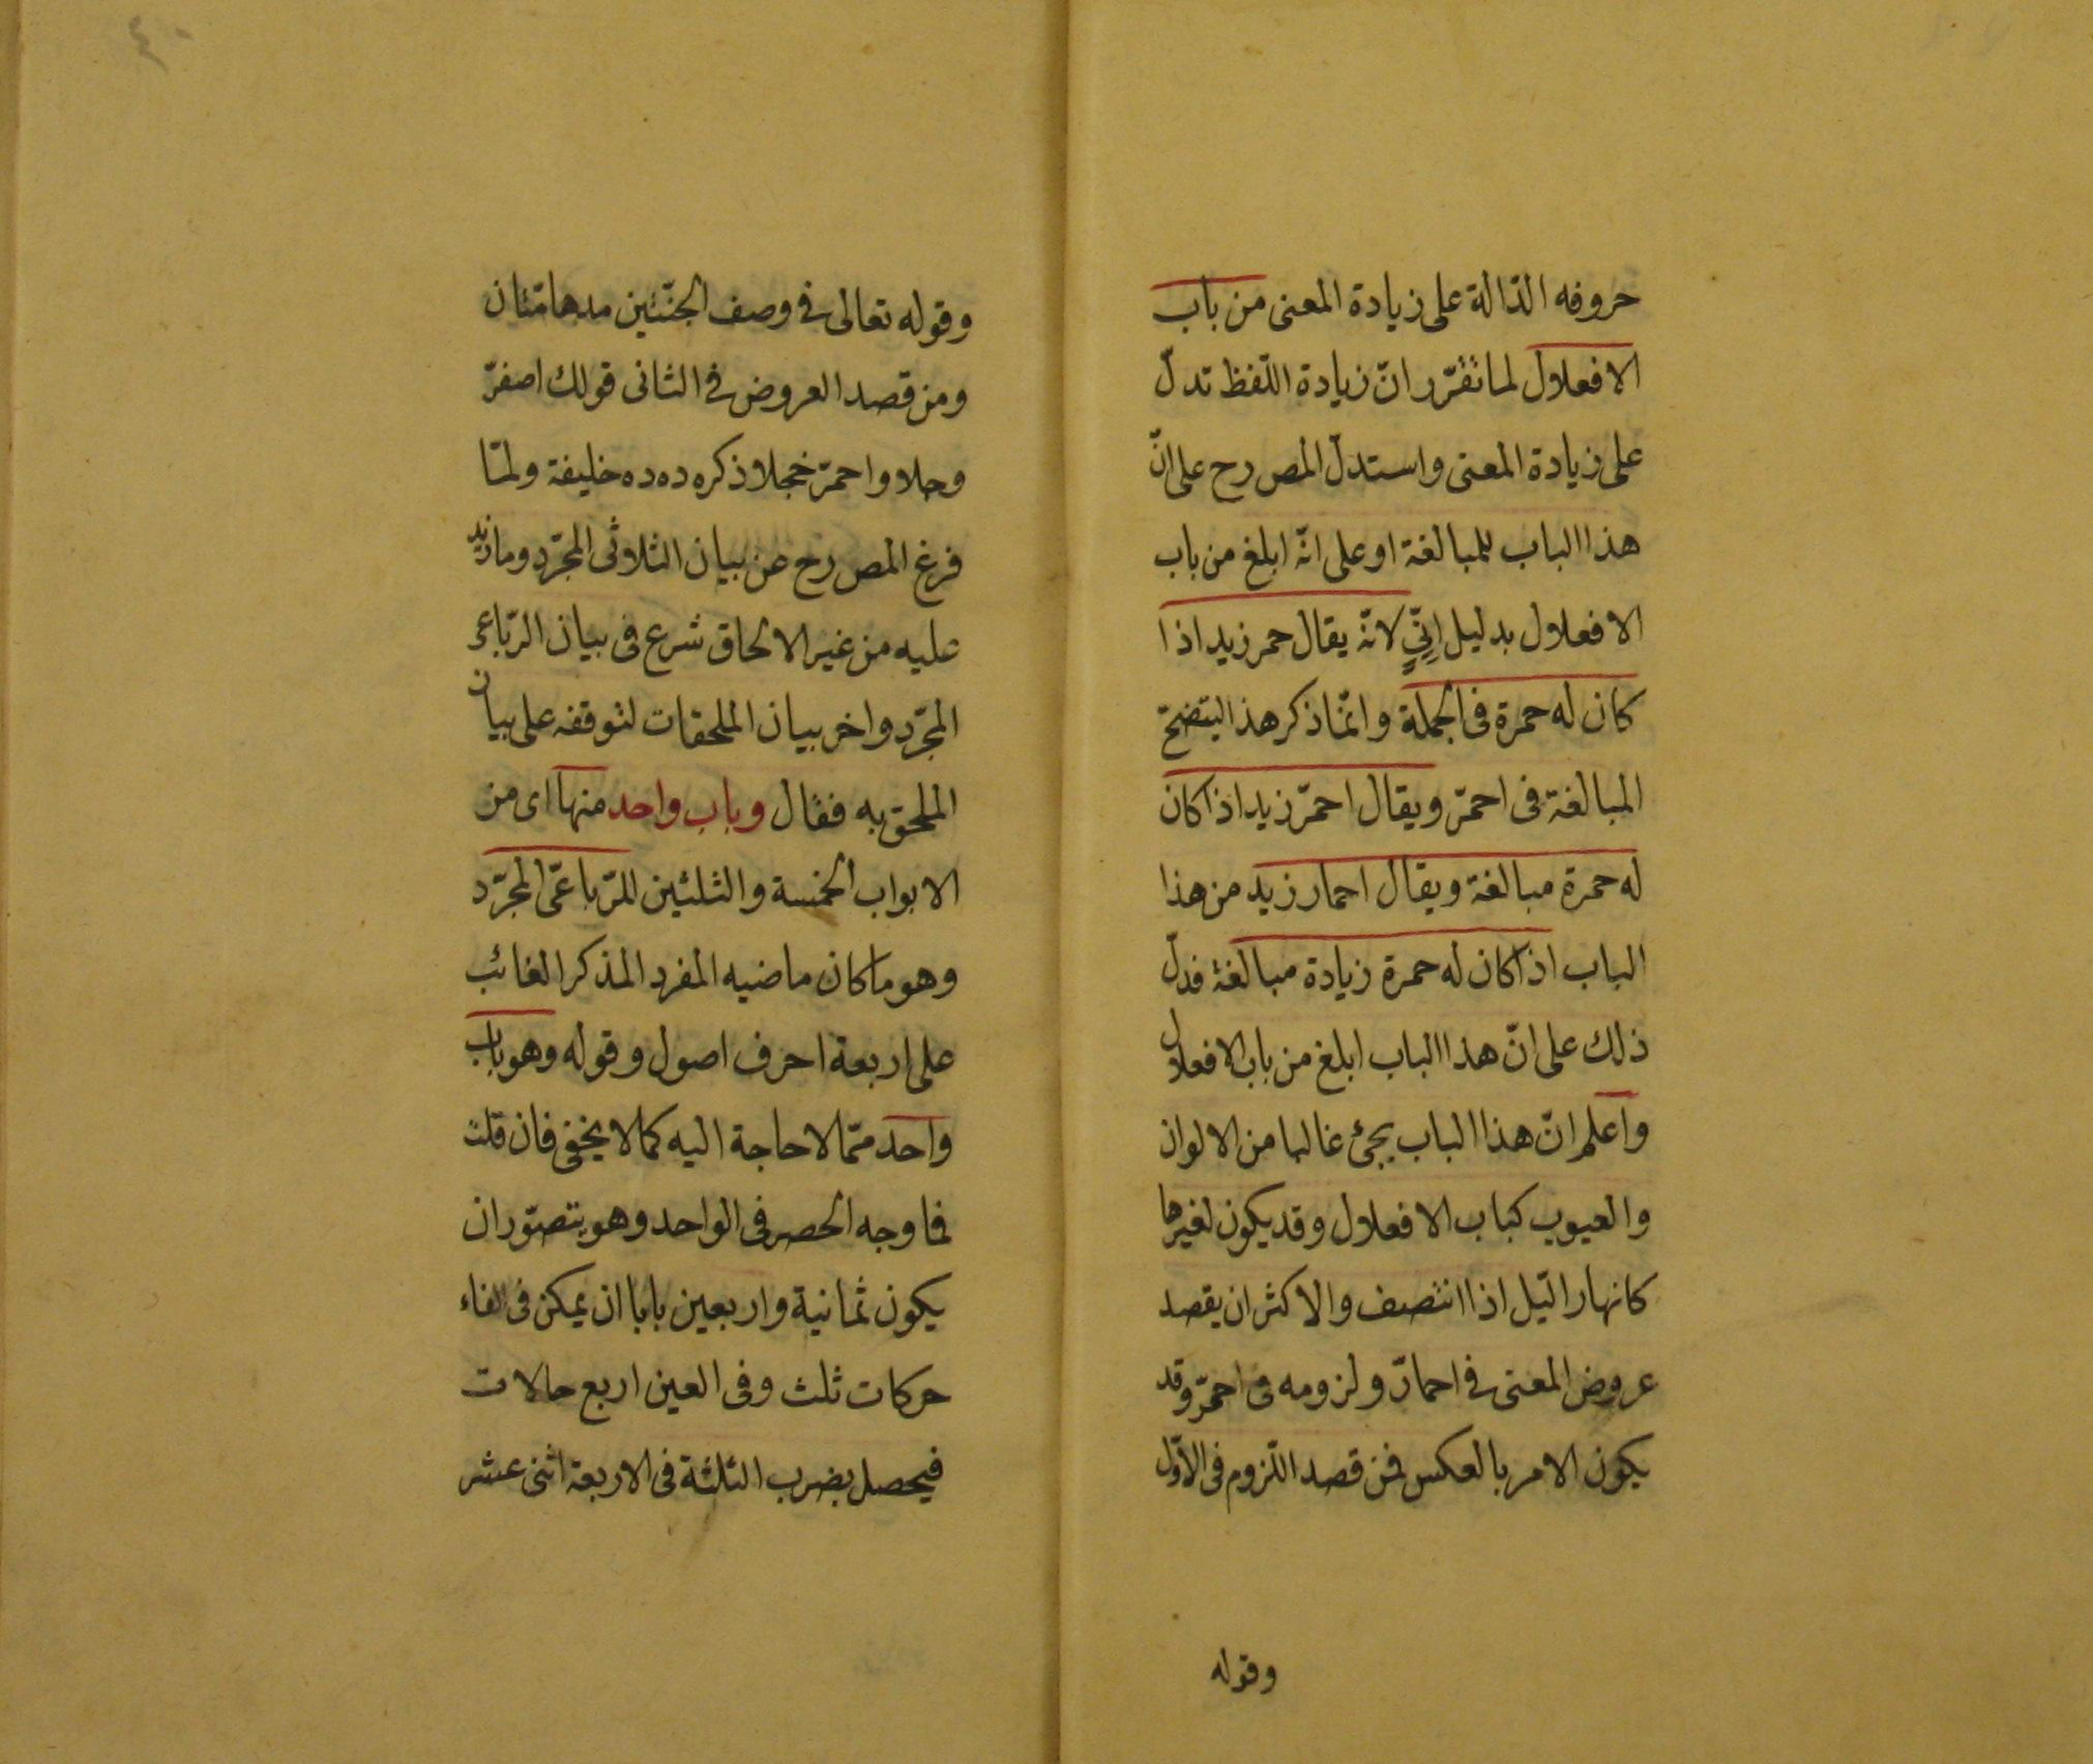 حروفه الدّالة على زيادة المعنى من باب
الافعلاول لما تقرّر انّ زيادة اللّفظ تدلّ
على زيادة المعنى واستدلّ المص رح على انّ
هذا الباب للمبالغة او على انّه ابلغ من باب
الافعلاول بدليل اِنِّيٍّ لانّه يقال حمر زيد اذا
كان له حمرة فى الجملة وانّما ذكر هذا ليتضحّ
المبالغة فى احمرّ ويقال احمرّ زيد اذا كان
له حمرة مبالغة ويقال احمار زيد من هذا
الباب اذا كان له حمرة زيادة مبالغة فدلّ
ذلك على انّ هذا الباب ابلغ من باب الافعلال
واعلم انّ هذا الباب يجئ غالبا من الالوان
والعيوب كباب الافعلاول وقد يكون لغيرها
كانهار الّيل اذا انتصف والاكثر ان يقصد
عروض المعنى فى احمارّ ولزومه فى احمرّ وقد
يكون الامر بالعكس فمن قصد اللّزوم فى الاوّل
وقوله
٤٠
وقوله تعالى فى وصف الجنّتين مدهامّتان
ومن قصد العروض فى الثانى قولك اصفرّ
وجلا واحمرّ خجلا ذكره ده ده خليفة ولمّا
فرغ المص رح عن بيان الثلاوثى المجرّد وما زيد
عليه من غير الالحاق شرع فى بيان الرّباعى
المجرّد واخر بيان الملحقات لتوقفه على بيان
الملحق به فقال وباب واحد منها اى من
الابواب الخمسة والثلثين للرّباعىّ المجرّد
وهو ما كان ماضيه المفرد المذكر الغائب
على اربعة احرف اصول وقوله وهو باب
واحد ممّا لا حاجة اليه كما لا يخفى فان قلت
فما وجه الحصر فى الواحد وهو يتصوّر ان
يكون ثمانية واربعين بابا اذ يمكن فى الفاء
حركات ثلث وفى العين اربع حالات
فيحصل بضرب الثلثة فى الاربعة اثنى عشر